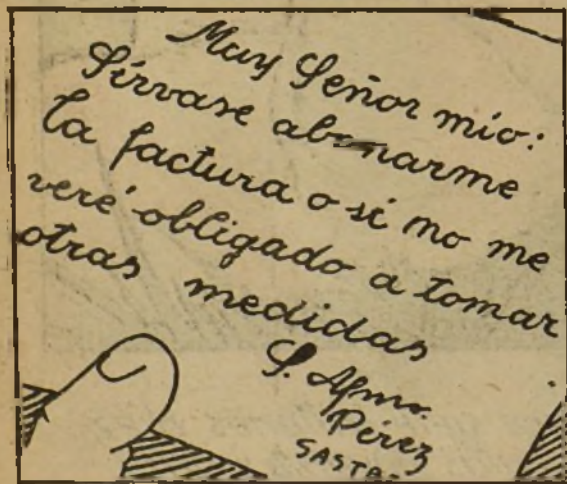 Muy Señor mío:
Sírvase abonarme
la factura o si no me
veré obligado a tomar
otras medidas
S. Afmo.
Pérez
SASTR